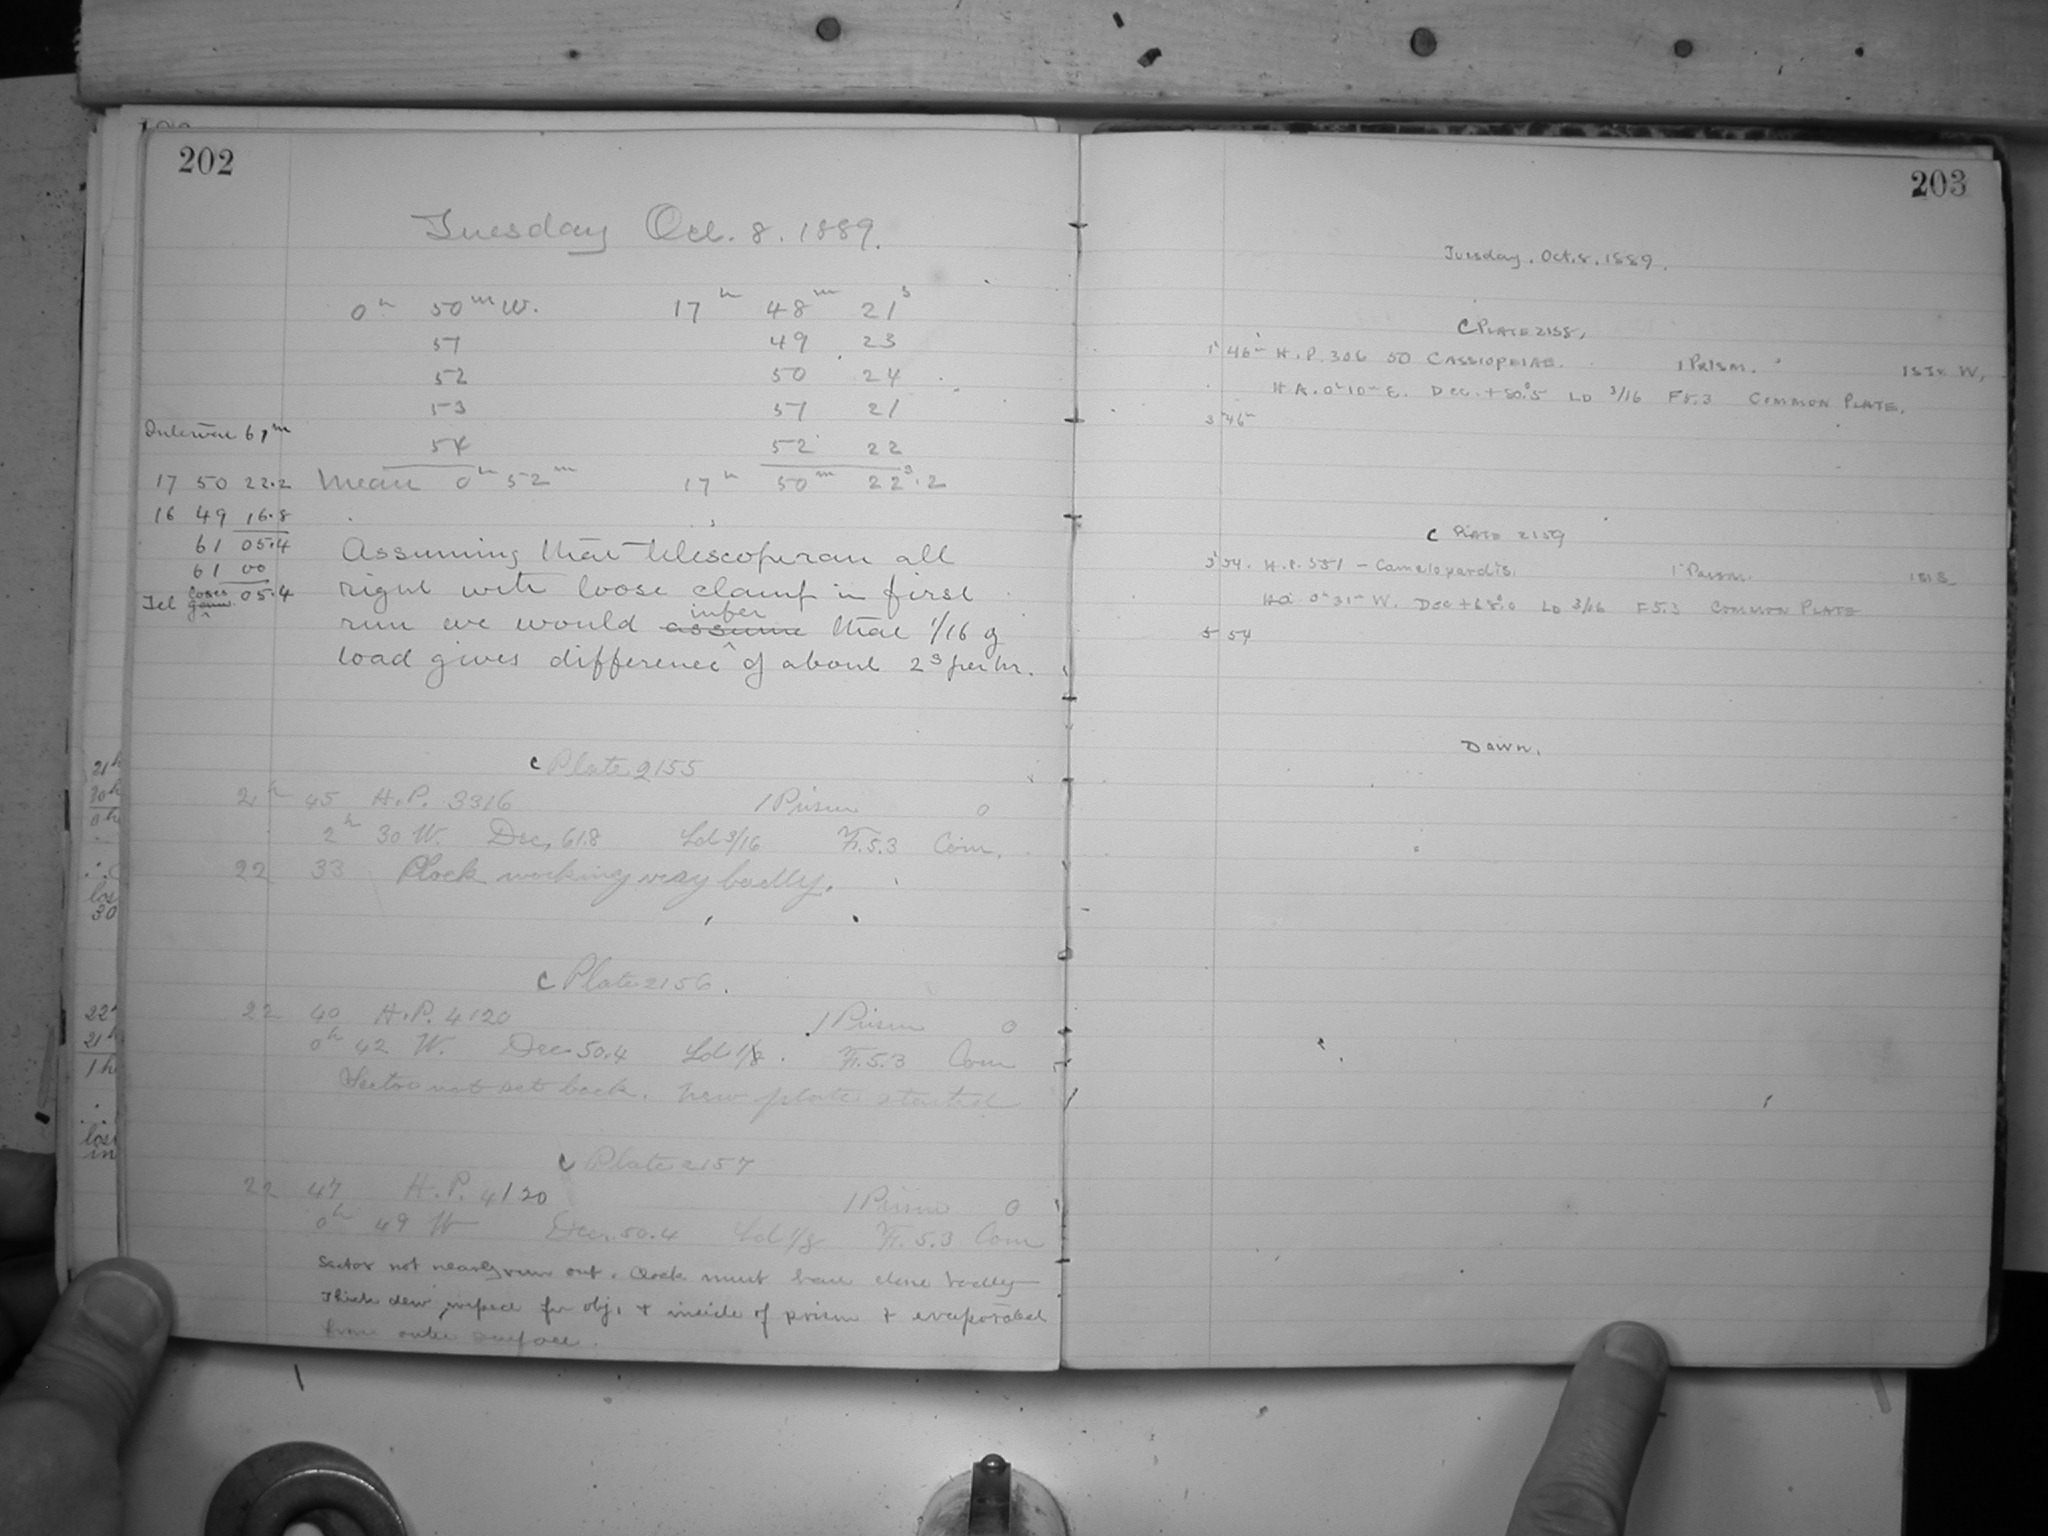 202
Tuesday Oct. 8. 1889.
0h 50m W. 17h 48m 21s
51 49 23
52 50 24
53 51 21
54 52 22
Mean 0h 52m 17h 50m 22s.2
Interval 61m
17 50 22.2
16 49 16.8
61 05.4
61 00
Tel loses gains 05.4
Assuming that telescope ran all
right with loose clamp in first
run we would assume infer that 1/16 of
load gives difference of about 2s per hr.
C Plate 2155
21h 45 H.P. 3316 1 Prism 0
2h 30 W. Dec. 61.8 Ld 3/16 Fr. 5.3 Com.
22 33 Clock working very badly.
C Plate 2156.
22 40 H.P. 4120 1 Prism 0
0h 42 W. Dec. 50.4 Ld 1/8. Fr. 5.3 Com
Sector not set back. New plate started
C Plate 2157
22 47 H.P. 4120 1 Prism 0
0h 49 W Dec. 50.4 Ld 1/8 Fr. 5.3 Com
Sector not nearly run out. Clock must have done badly
Thick dew wiped from obj. & inside of prism & evaporated
from outer surface.
21h
22h
21h
1h
203
Tuesday. Oct. 8. 1889.
C PLATE 2158.
1h 46m H.P. 306 50 CASSIOPEIAE. 1 PRISM. W.
H.A. 0h 10m E. DEC. +50°.5 LD 3/16 F 5.3 COMMON PLATE.
3h 46m
C PLATE 2159
3h 54. H.P. 551 - Camelopardis. 1 Prism.
HA 0h 31m W. DEC +68°.0 LD 3/16 F 5.3 COMMON PLATE
5 54
DAWN.